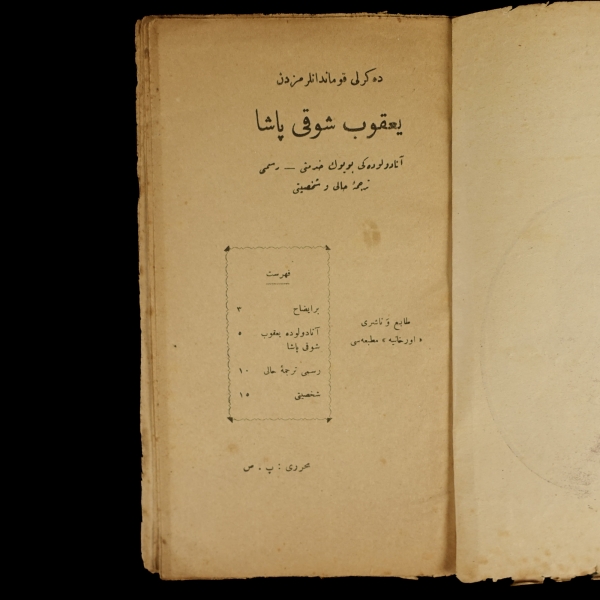 ده‌كرلی قوماندانلرمزدن
یعقوب شوقی پاشا
آنادولوده‌كی بویوك خدمتی — رسمی
ترجمۀ حالی و شخصیتی
فهرست
برایضاح ٣
آنادولوده یعقوب شوقی پاشا ٥
رسمی ترجمۀ حالی ١٠
شخصیتی ١٥
طابع و ناشری
« اورخانیه » مطبعه‌سی
محرری : پ . ص